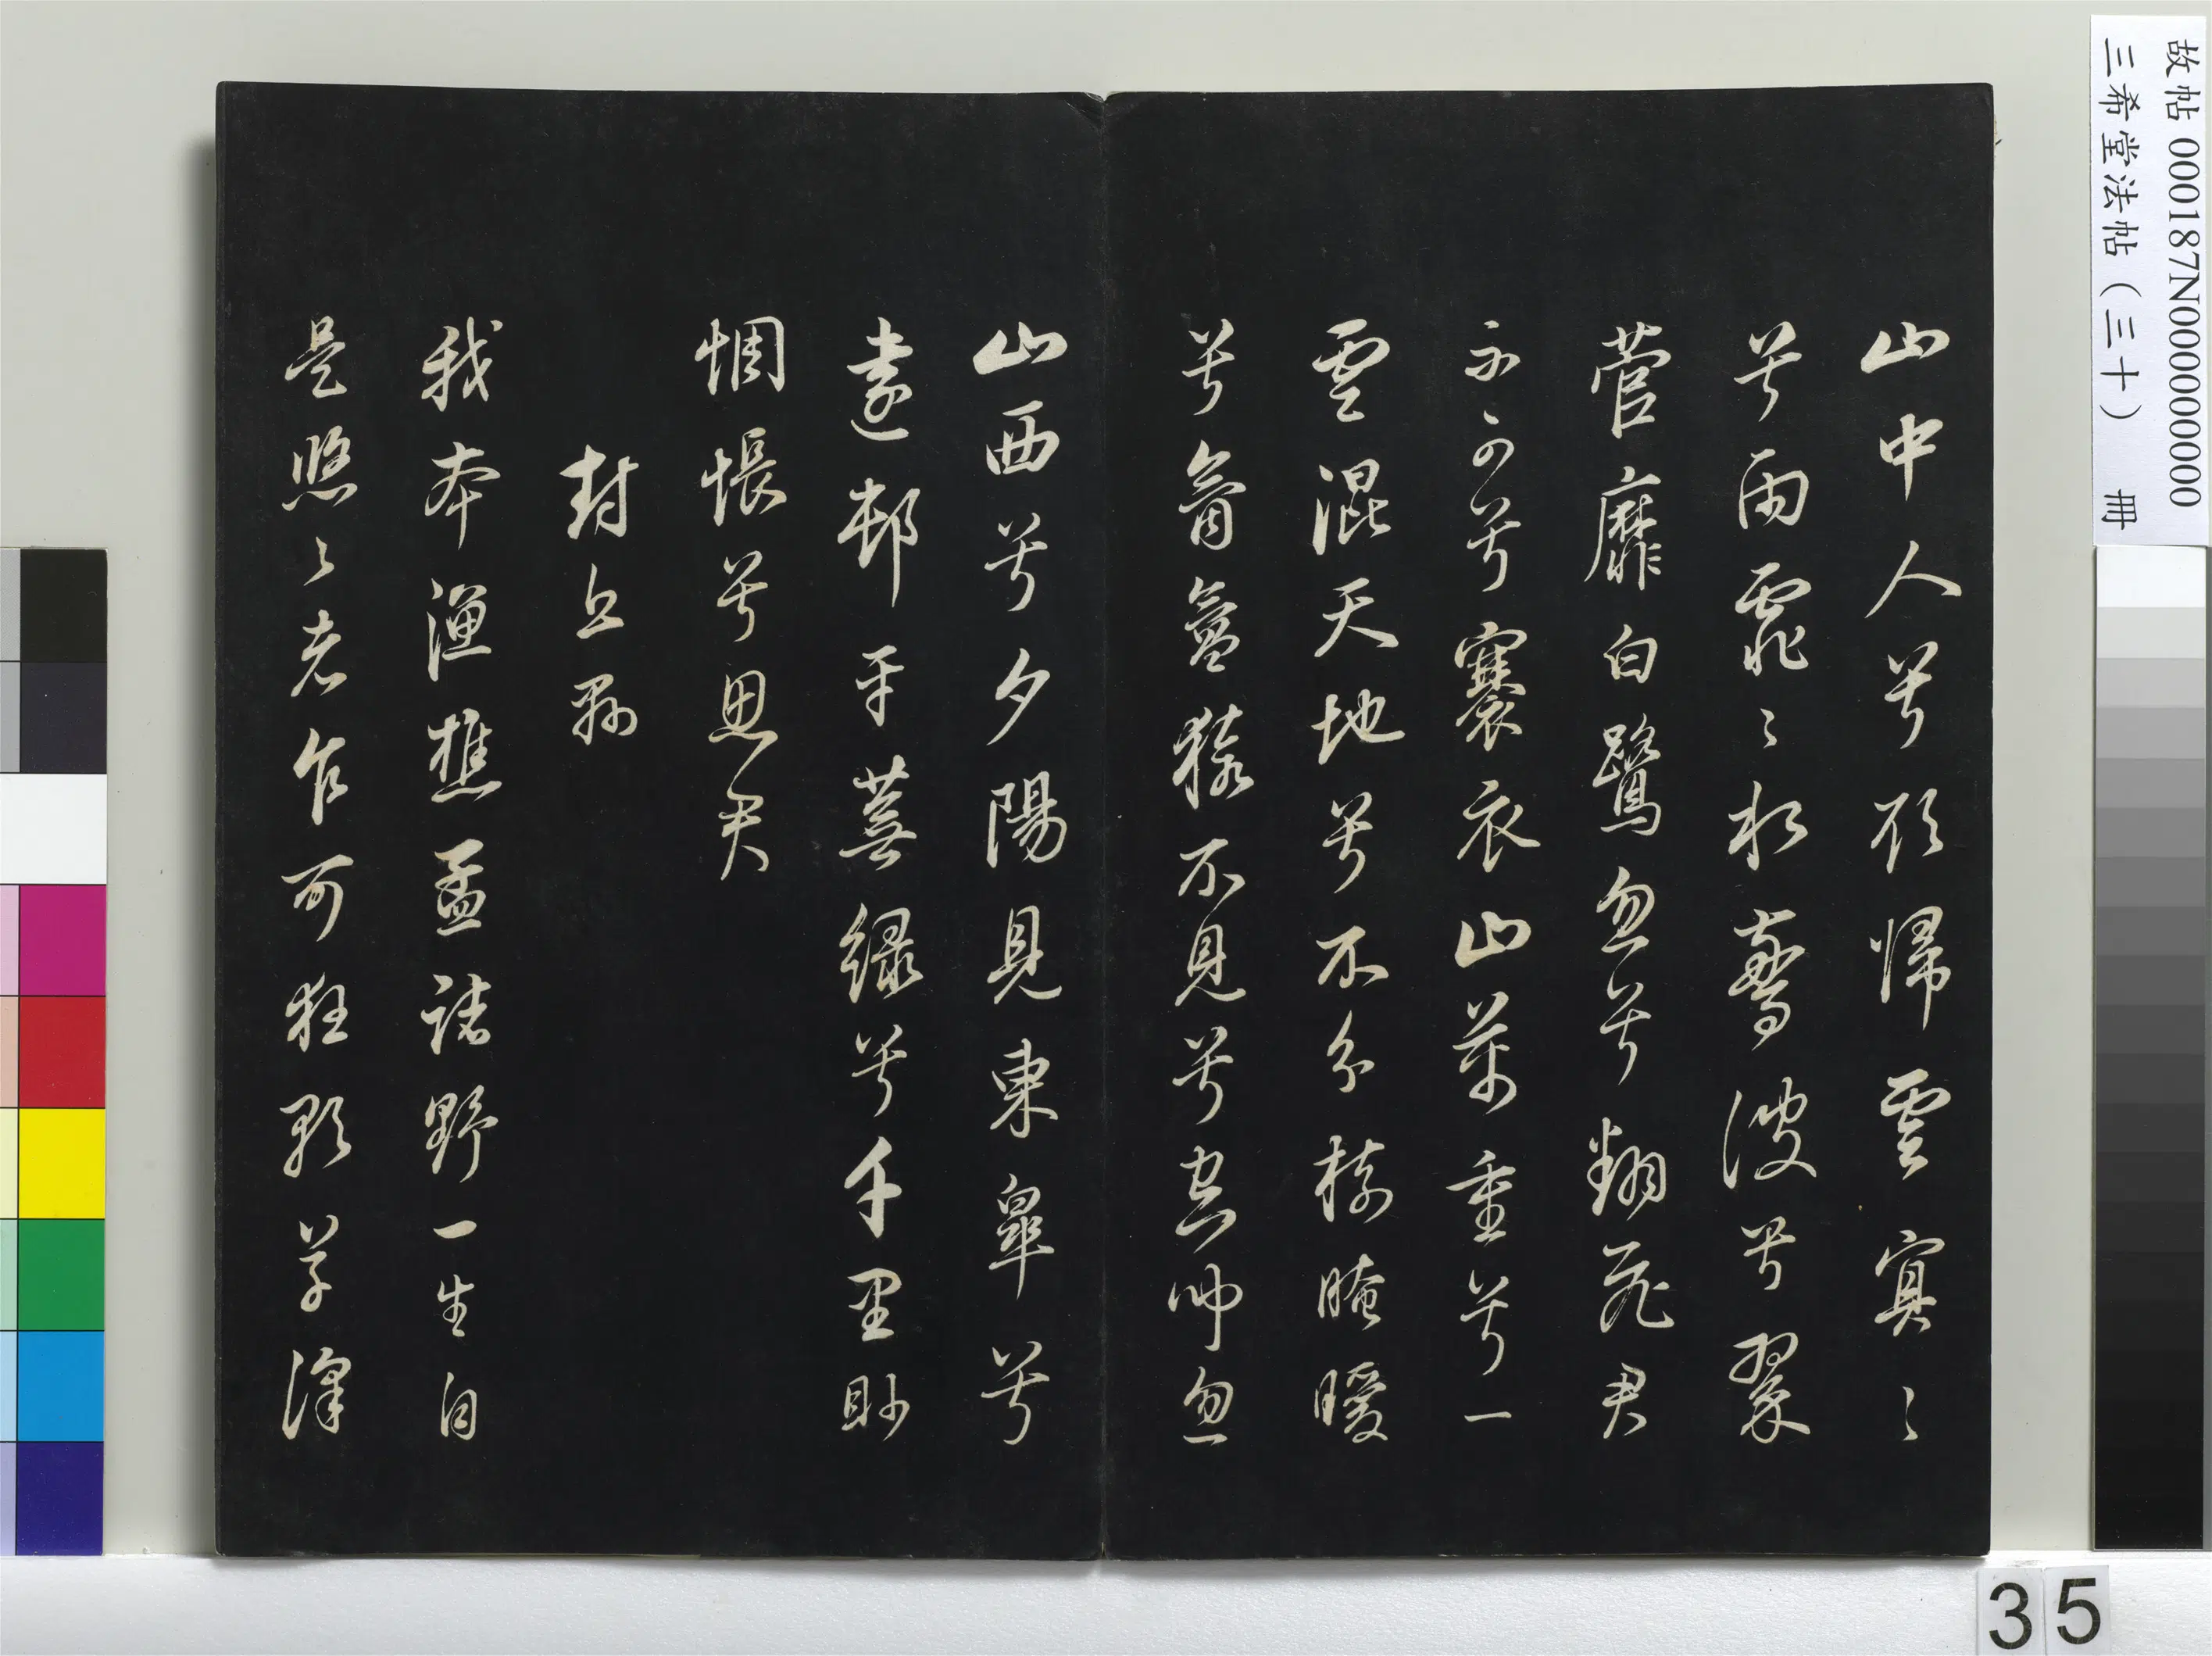 山中人兮欲歸雲冥〻
兮雨霏〻水驚波兮翠
菅靡白鷺忽兮翻飛君
不可兮褰衣山萬重兮一
雲混天地兮不分樹晻曖
兮氤氳猿不見兮空聞忽
山西兮夕陽見東皋兮
遠邨平蕪綠兮千里眇
惆悵兮思君
封丘縣
我本漁樵孟諸野一生自
是悠〻者乍可狂歌草澤
故帖 000187N000000000
三希堂法帖（三十） 冊
35